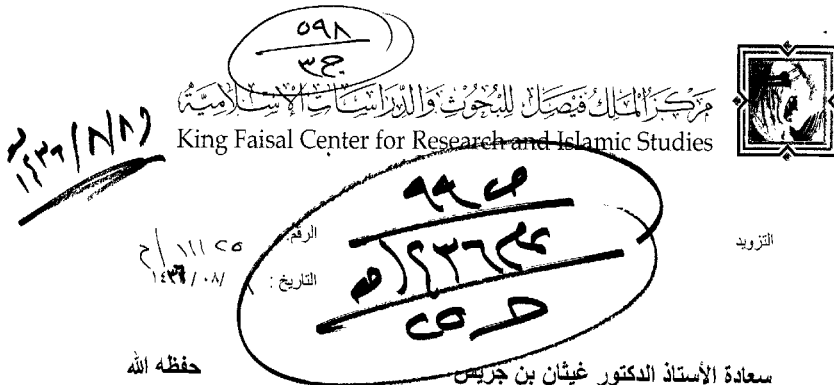 ٥٩٨
ج٣
مركز الملك فيصل للبحوث والدراسات الإسلامية
King Faisal Center for Research and Islamic Studies
ص ٩٩
التزويد
الرقم: ١١١٢٥ / ح
التاريخ: / ٠٨ / ١٤٣٦
سعادة الأستاذ الدكتور غيثان بن جريس
حفظه الله